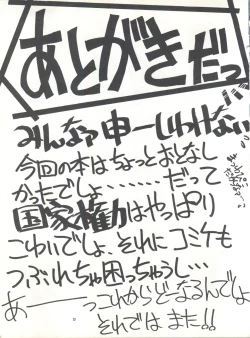 あとがきだっ
みんなァ申ーしわけない
今回の本はちょっとおとなし
かったでしょ……だって
国家権力はやっぱり
こわいでしょ、それにコミケも
つぶれちゃ困っちゃうし…
あ――っこれからどーなるんでしょ
それでは また!!